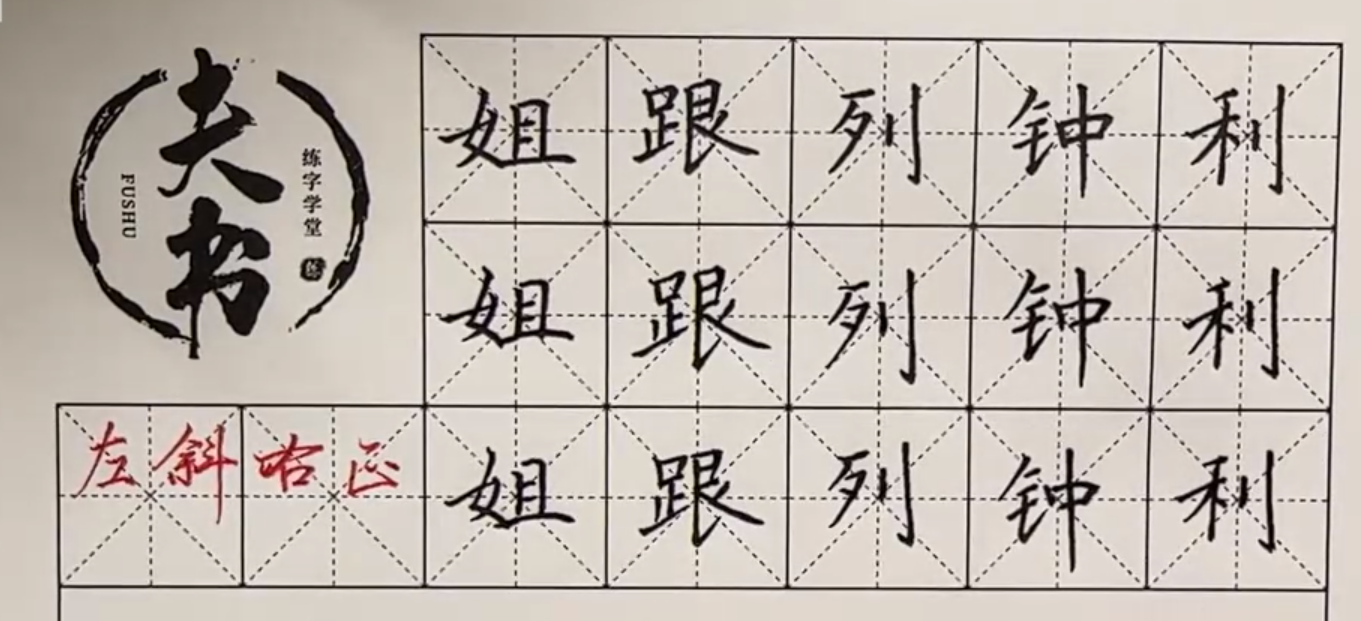 夫书
FUSHU
练字学堂
姐跟列钟利
姐跟列钟利
左斜右正
姐跟列钟利